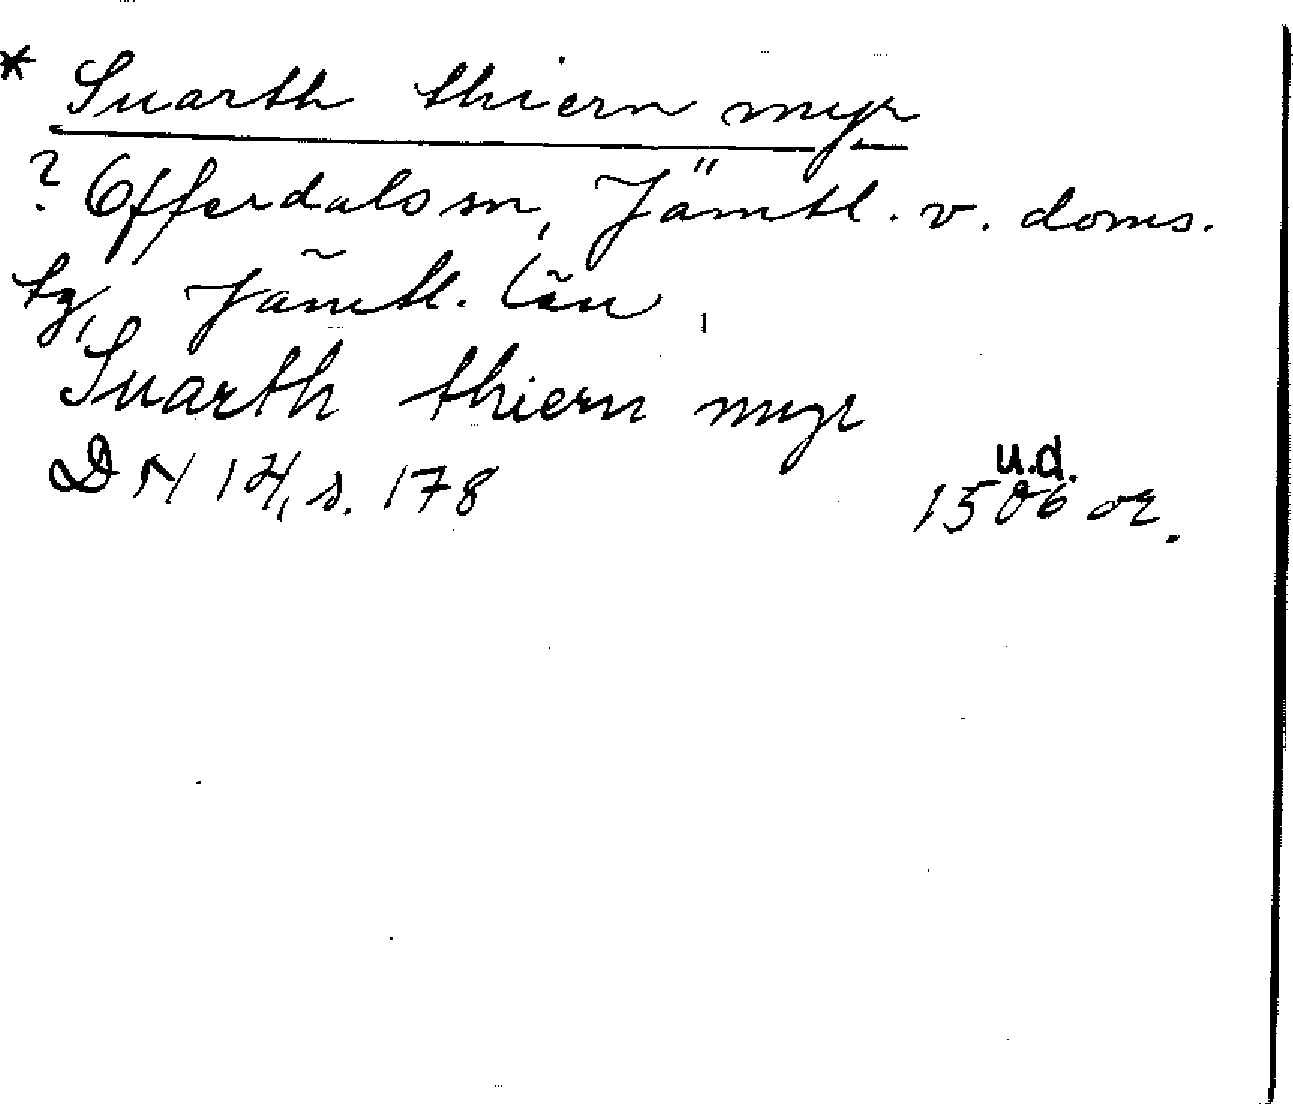 * Suarth thiern myr
? Offerdals sn, Jämtl. v. doms.
tg, Jämtl. län,
Suarth thiern myr
DN 14, s. 178
u.d.
1506 or.